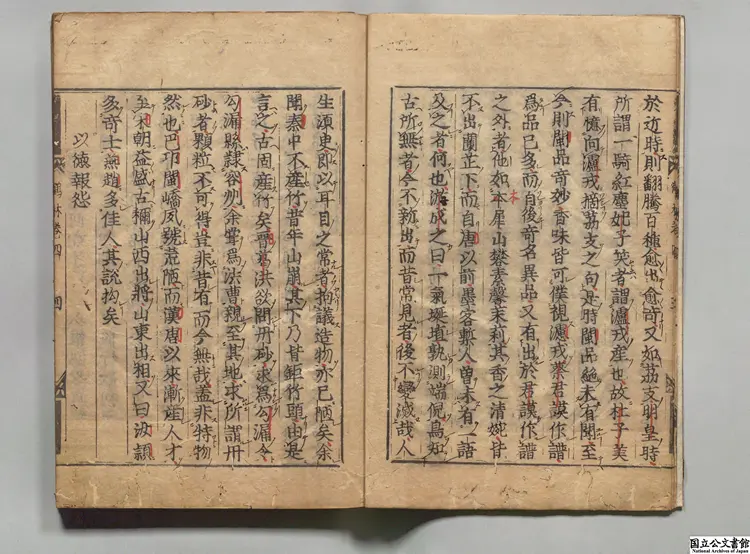 於近時則翻騰百種愈出愈奇又如荔支明皇時
所謂一騎紅塵妃子笑者謂瀘戎產也故杜子美
有憶向瀘戎摘荔支之句是時閩品絕未有聞至
今則閩品奇妙香味皆可僕視瀘戎蔡君謨作譜
為品已多而自後奇名異品又有出於君謨作譜
之外者他如本犀山礬素馨末莉其香之清婉皆
不出蘭芷下而自唐以前墨客槧人曾未有一話
及之者何也游成之曰一氣埏埴孰測端倪烏知
古所無者今不新出而昔常見者後不變滅哉人
生須臾即以耳目之常者拘議造物亦已陋矣余
聞秦中不產竹昔年山崩其下乃皆鉅竹頭由是
言之古固產竹矣晉葛洪欲聞丹砂求為勾漏令
勾漏縣隸容州余嘗為法曹親至其地求所謂丹
砂者顆粒不可得豈非昔有而今無哉蓋非特物
然也巴邛閩嶠夙號荒陋而漢唐以來漸產人才
至宋朝益盛古稱山西出將山東出相又曰汝潁
多奇士燕趙多佳人其說拘矣
以德報怨
鶴林卷四 四
国立公文書館
National Archives of Japan